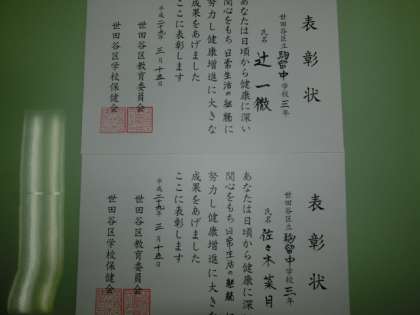 表彰状
世田谷区立駒留中学校三年
氏名 辻 一徹
あなたは日頃から健康に深い
関心をもち日常生活の
努力し健康増進に大きな
成果をあげました
ここに表彰します
平成二十九年三月十五日
世田谷区教育委員会
世田谷区学校保健会
表彰状
世田谷区立駒留中学校三年
氏名 佐々木 菜月
あなたは日頃から健康に深い
関心をもち日常生活の
努力し健康増進に大きな
成果をあげました
ここに表彰します
平成二十九年三月十五日
世田谷区教育委員会
世田谷区学校保健会